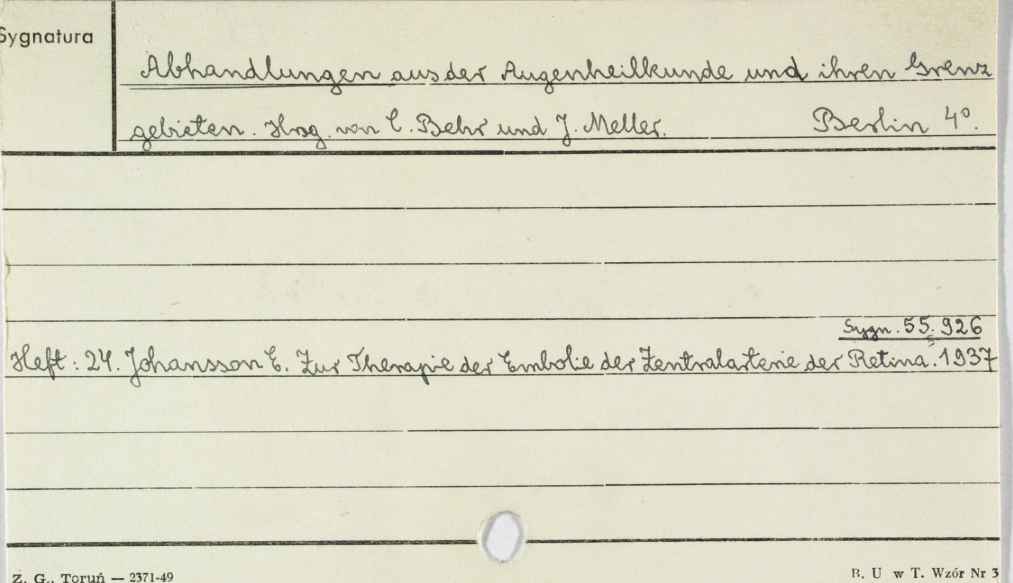 Sygnatura
Abhandlungen aus der Augenheilkunde und ihren Grenz
gebieten. Hrsg. von C. Behr und J. Meller. Berlin 4°.
Sygn. 55.926
Heft: 24. Johansson E. Zur Therapie der Embolie der Zentralarterie der Retina. 1937
Z. G., Toruń — 2371-49
B. U w T. Wzór Nr 3